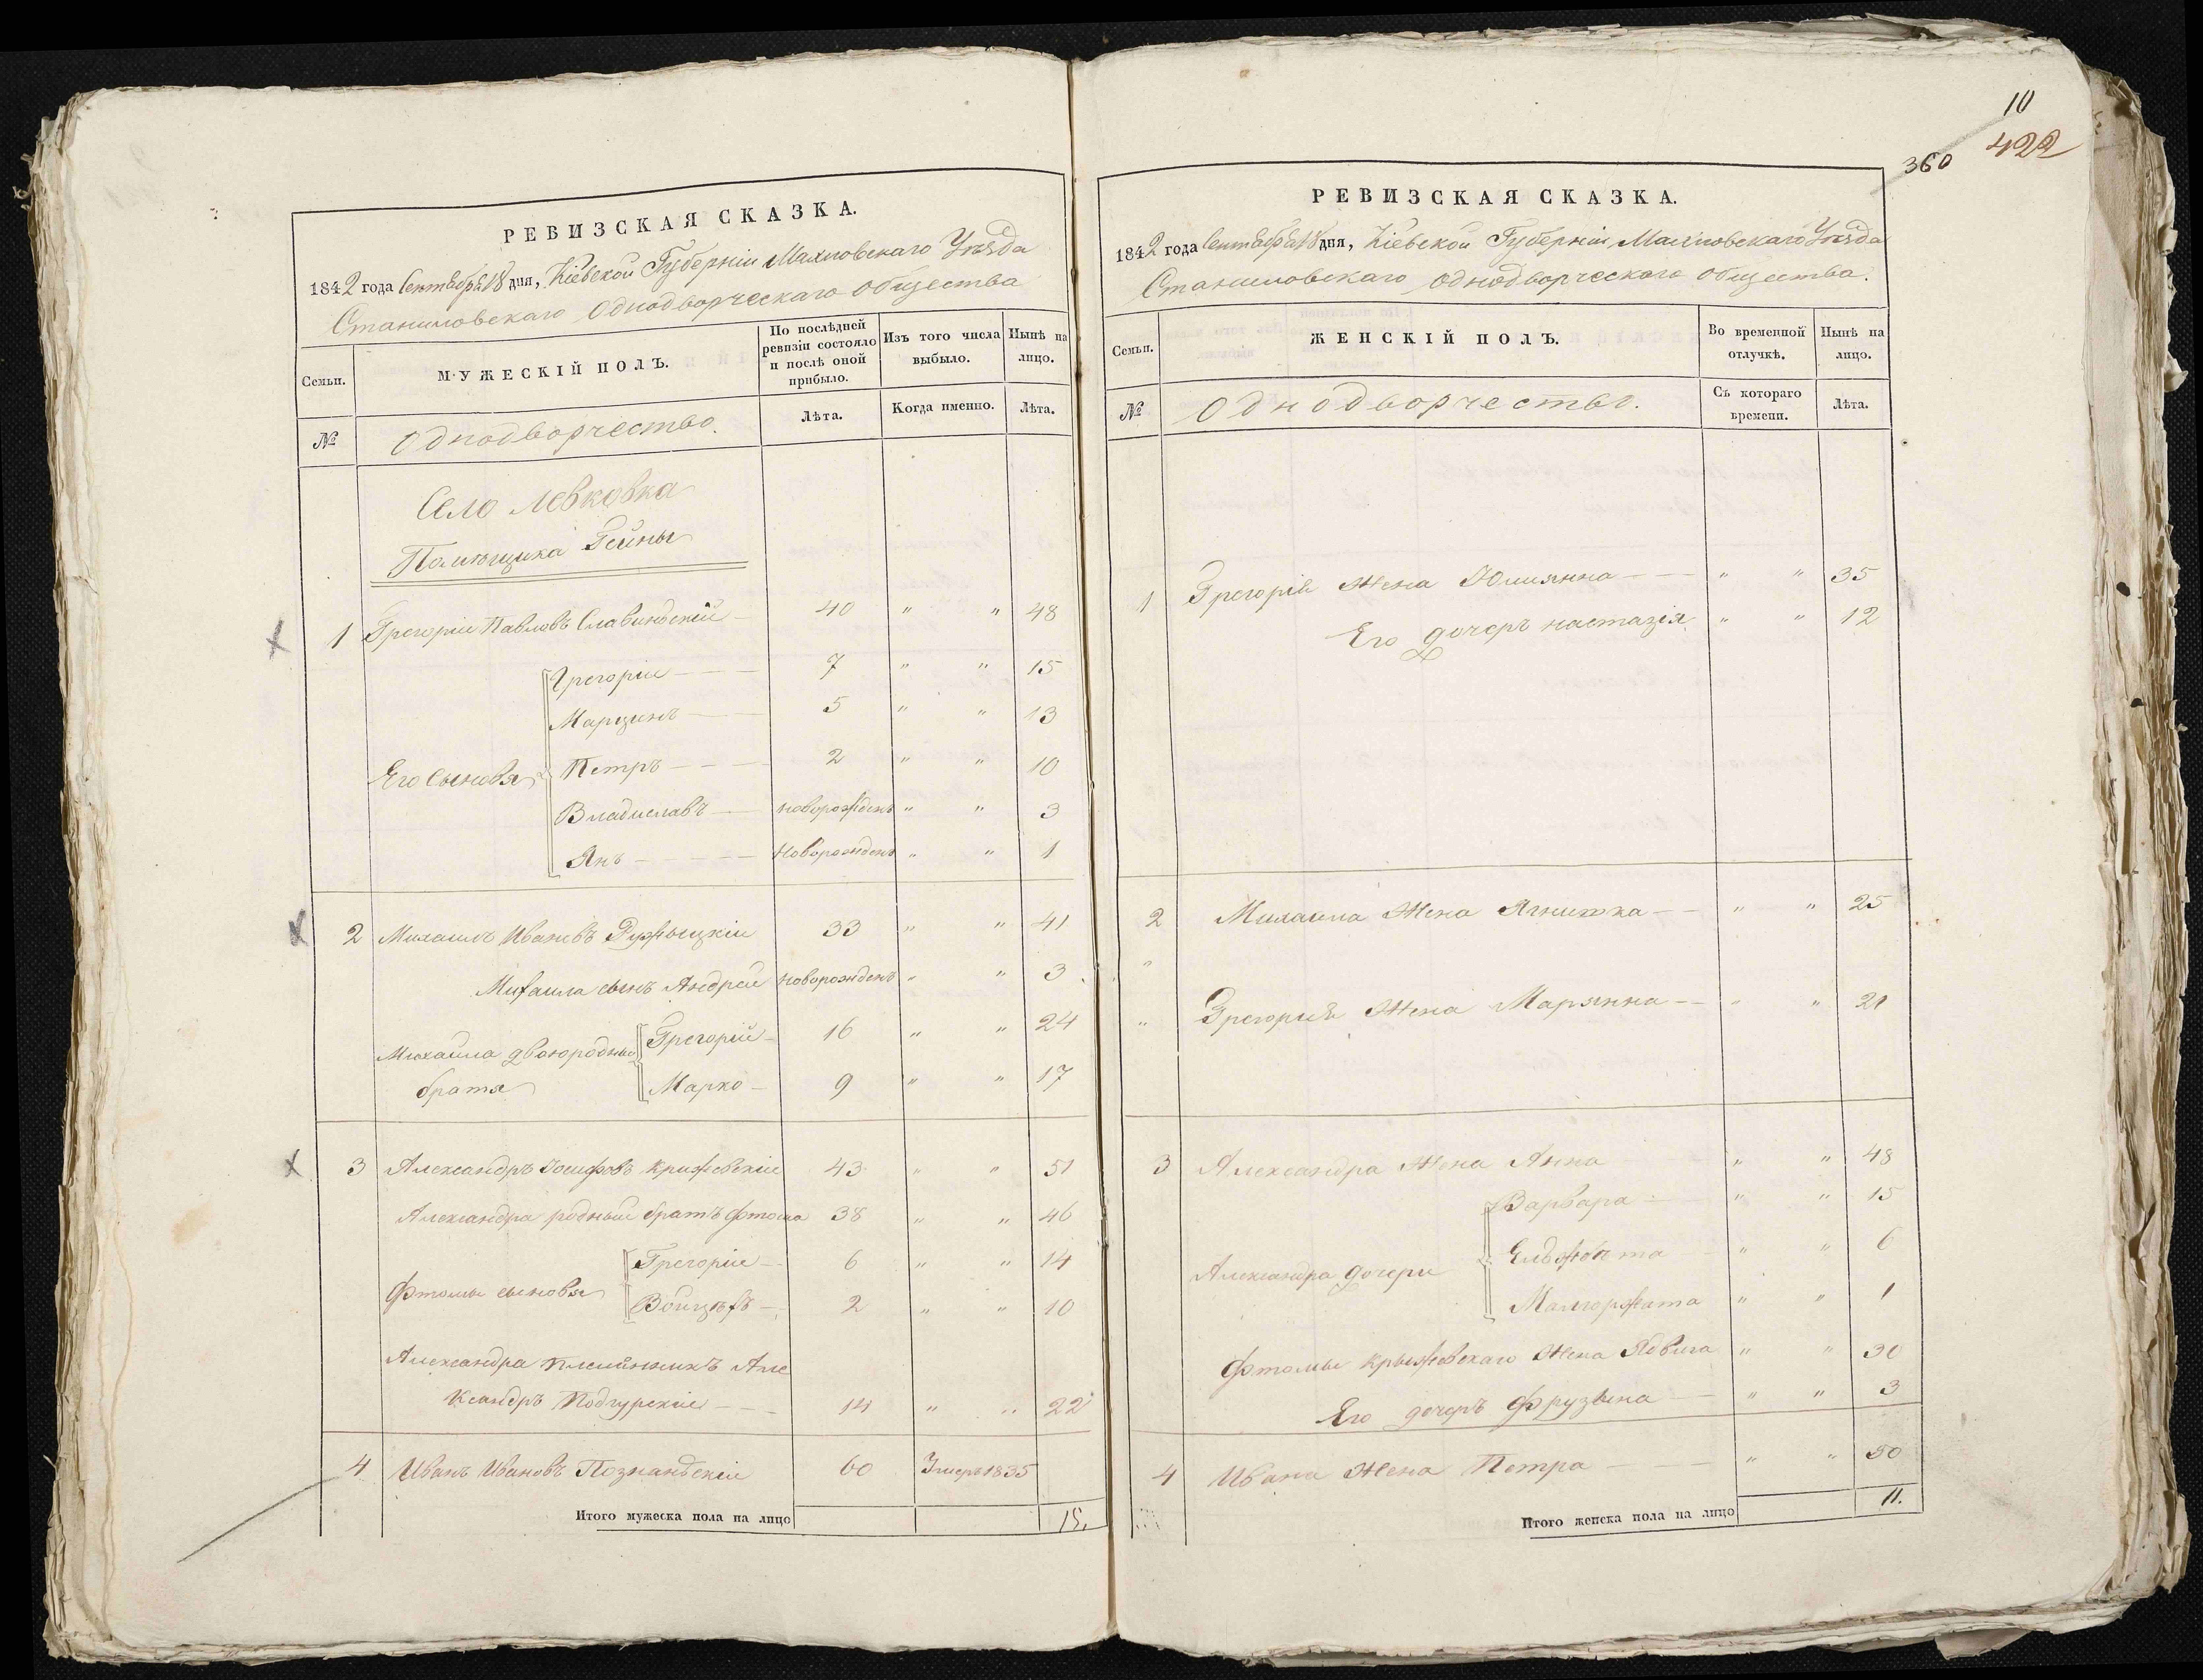 РЕВИЗСКАЯ СКАЗКА.
1842 года Сентября 18 дня, Кіевской Губерніи Махновскаго Уѣзда
Станиловскаго Однодворческаго общества
Семьи.
МУЖЕСКІЙ ПОЛЪ.
По послѣдней ревизіи состояло и послѣ оной прибыло.
Изъ того числа выбыло.
Нынѣ на лицо.
№
Однодворчество.
Лѣта.
Когда именно.
Лѣта.
Село Левковка
Помѣщика Гейны
1 Грегорій Павловъ Славинскій 40 " " 48
Грегорій 7 " " 15
Марцинъ 5 " " 13
Его Сыновя Петръ 2 " " 10
Владиславъ новорожденъ " " 3
Янъ Новорожденъ " " 1
2 Михаилъ Ивановъ Ружыцкій 33 " " 41
Михаила сынъ Андрей новорожденъ " " 3
Михаила двоюродные Грегорій 16 " " 24
братя Марко 9 " " 17
3 Александръ Іосифовъ Крижевскій 43 " " 51
Александра родный братъ Фтома 38 " " 46
Грегорій 6 " " 14
Фтомы сыновя Войцѣхъ 2 " " 10
Александра племянникъ Але
ксандръ Подгурскій 14 " " 22
4 Иванъ Ивановъ Познанскій 60 Умеръ 1835
Итого мужеска пола на лицо 15.
10
422
360
РЕВИЗСКАЯ СКАЗКА.
1842 года Сентября 18 дня, Кіевской Губерніи, Махновскаго Уѣзда
Станиловскаго однодворческаго общества.
Семьи.
ЖЕНСКІЙ ПОЛЪ.
Во временной отлучкѣ.
Нынѣ на лицо.
№
Однодворчество.
Съ котораго времени.
Лѣта.
1 Грегорія Жена Юлиянна " " 35
Его дочерь настазія " " 12
2 Михаила Жена Ягнишка " " 25
"
" Грегорія Жена Марянна " " 21
3 Александра Жена Анна " " 48
Варвара " " 15
Александра дочери Ельжбѣта " " 6
Малгоржата " " 1
Фтомы Крыжевскаго Жена Ядвига " " 30
Его дочерь Фрузына " " 3
4 Ивана Жена Петра " " 50
Итого женска пола на лицо 11.